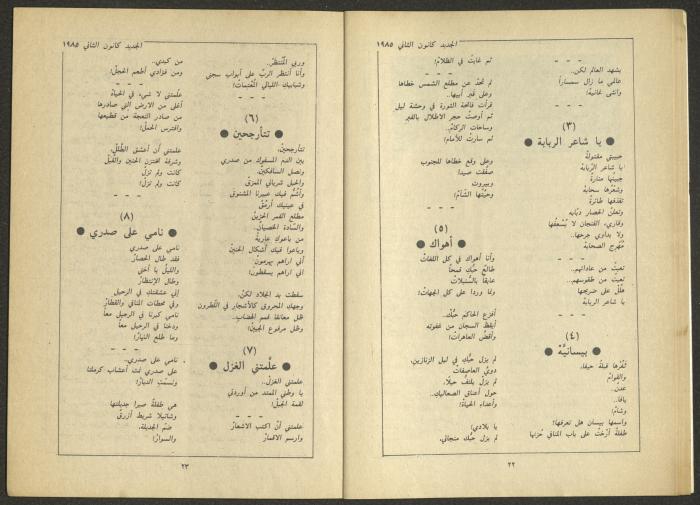 الجديد كانون الثاني ١٩٨٥
يشهد العالم لكن..
عالمي ما زال سمساراً
وانثى غانية!
(٣)
يا شاعر الربابة
حبيبتي مقتولةٌ
يا شاعر الرّبابة
جبينُها منارةٌ
وشعْرُها سحابة
تقذفها طائرةٌ
وتعلنُ الحصار دبّابه
وقارىء الفنجان لا يُسْعفُها
ولا يداوي جرحَها..
مُهَرج الصحابة
تعبتُ من عاداتهم..
تعبتُ من طقوسهم..
على ضريحها
يا شاعر الربابة
(٤)
بيسانيَّة
ثغْرُها قبلةُ حيفا.
والقوامْ
عدن..
يافا..
وشآم!
واسمها بيسان هل تعرفها؟
طفلةٌ أرْخَتْ على باب المنافي حُزنها
ثم غابتْ في الظلام!
لم تحُدْ عن مطلع الشمس خطاها
وعلى قبر أبيها..
قرأت فاتحة الثورة في وحشة ليل
ثم أوصتْ حجر الاطلال بالقبر
وساحات الركام..
ثم سارتْ للأمام!
وعلى وقع خطاها للجنوب
صفّقت صيدا
وبيروت
وحيّتْها الشّآمْ!
(٥)
أهواك
وأنا أهواك في كل اللغاتْ
طالعٌ حبّك قمحاً
عابقاً بالسُّنبلات
نما وردا على كل الجهات!
أفزع الحاكم حبُّك..
أيقظ السجان من غفوته
وأقضّ العاهرات!
لم يزل حبكِ في ليل الزنازين.
دويّ العاصفات
لم يزل يلتفّ حبلا.
حول أعناق الصعاليك..
وأعداء الحياة!
يا بلادي!
لم يزل حبُّك منجاتي.
٢٢
الجديد كانون الثاني ١٩٨٥
وربي المُنْتظرْ..
وأنا أنتظر الربّ على أبواب سجني
وشبابيك الليالي المُعتمات!
(٦)
تتأرجحين
تتأرجحين،
بين الدم المسفوك من صدري
ونصل السافكين.
والحبل شرياني الممزقْ
وأشُمُّ فيك عبيرنا المشنوق
في عينيك أزرقْ
مطلع القمر الحزينْ
والسّادة الخصيان..
من باعوك عاريةً
وباعوا فيك أشكال الحنين
أني اراهم يهرمون
اني اراهم يسقطون!
سقطت يد الجلاد لكنْ،
وجهك المحروق كالأشجار في النّطرون
ظل معانقا قمم الهضاب..
وظل مرفوع الجبين!
(٧)
علَّمتني الغزل
علمتني الغزلْ..
يا وطني الممتد من أوردتي
لقمة الجبلْ!
علمتني أنْ اكتب الاشعار
وارسم الاقمار
من كبدي..
ومن فؤادي أطعم الحجل!
علّمتني لا شيء في الحياةْ
أغلى من الارض التي صادرها
من صادر النعجة من قطيعها
وافترس الحمل!
علمتني أن أعشق الطّلل..
وشرفة تختزن الحنين والقُبَل
كانت ولم تزلْ
كانت ولم تزل!
(٨)
نامي على صدري
نامي على صدري
فقد طال الحصار
والليل يا أختي
وطال الإنتظار
إني عشقتكِ في الرحيل
وفي محطات المنافي والقطار
نامي كبرنا في الرحيل معاً
ودخنا في الرحيل معاً
وما طلع النهار!
نامي على صدري..
على صدري نمت أعشاب كرملنا
ونسّمَتِ الديار!
هي طفلةٌ صبرا جديلتها
وشاتيلا شريط أزرقٌ
ضمّ الجديلة.
والسوار!
٢٣